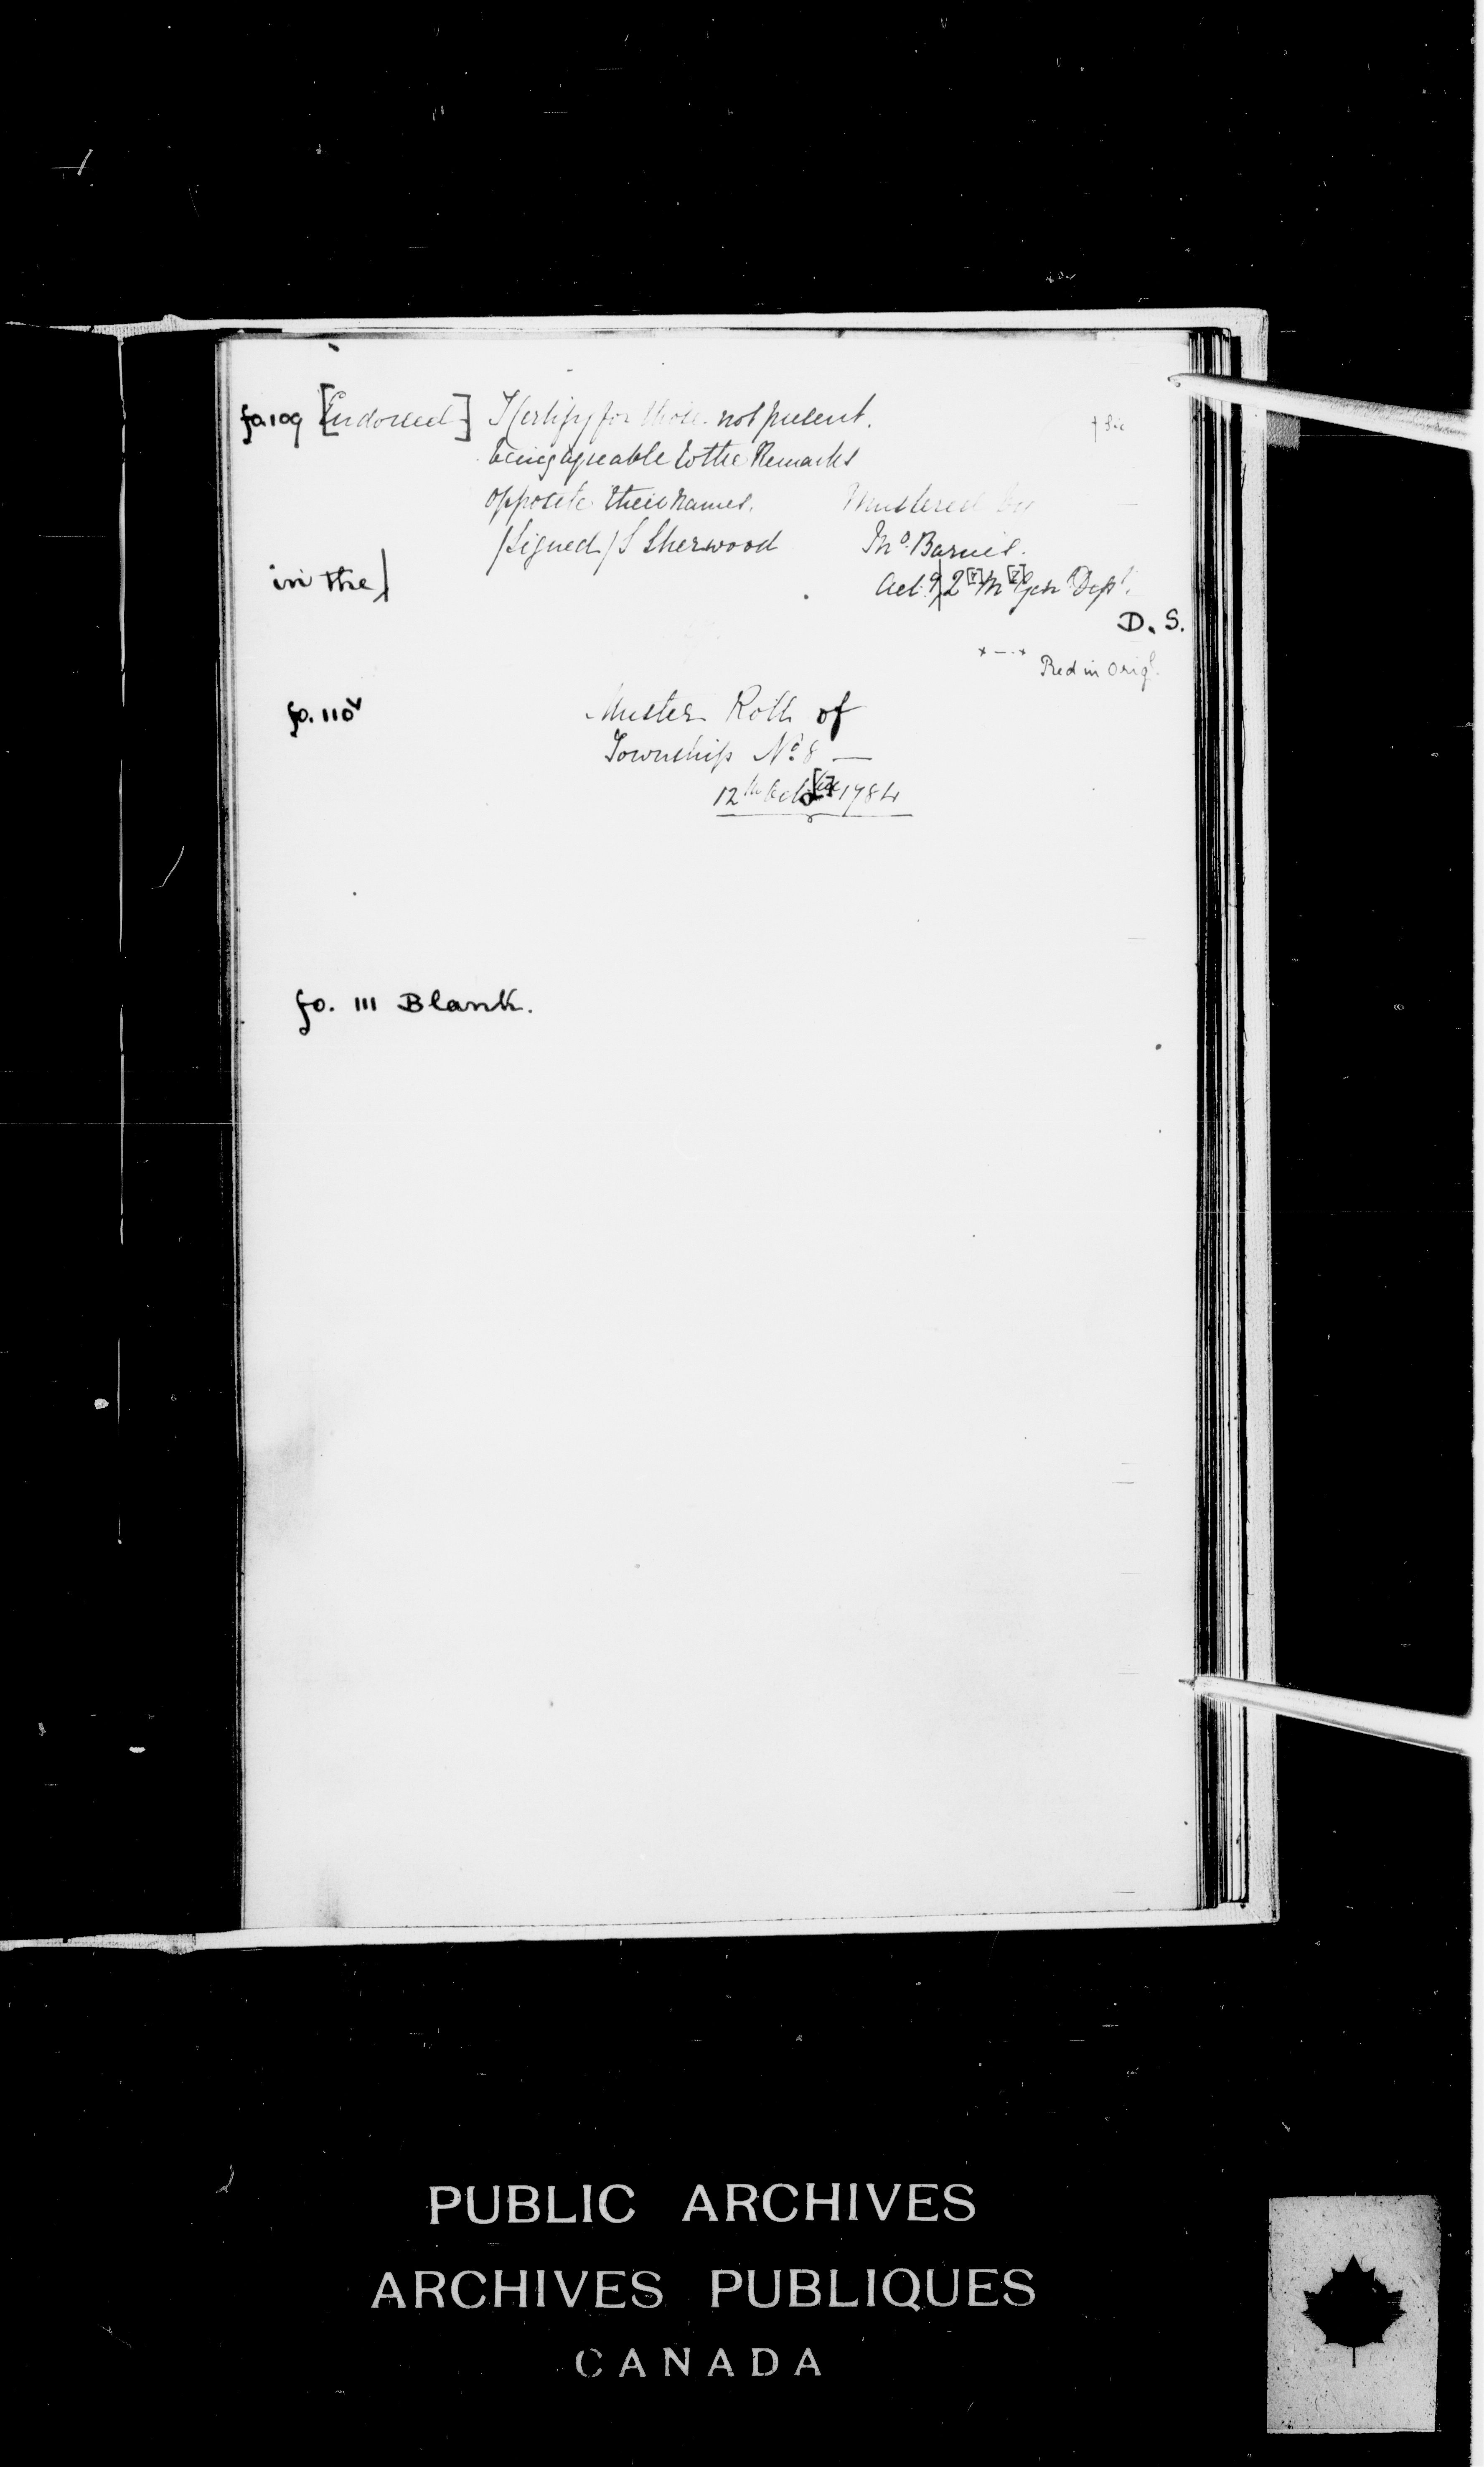 fo. 109 [Endorsed] I Certify for those not present.
being agreable to the Remarks
opposite their names. Mustered by
/Signed/ S Sherwood Jnº Barnes.
in the] Act:g Q[r] M[r] Gen Dept.
D. S.
x-·-x Red in Origl.
fo. 110v Muster Roll of
Township Nº 8 —
12th Octo[ber] 1784
fo. 111 Blank.
PUBLIC ARCHIVES
ARCHIVES PUBLIQUES
CANADA